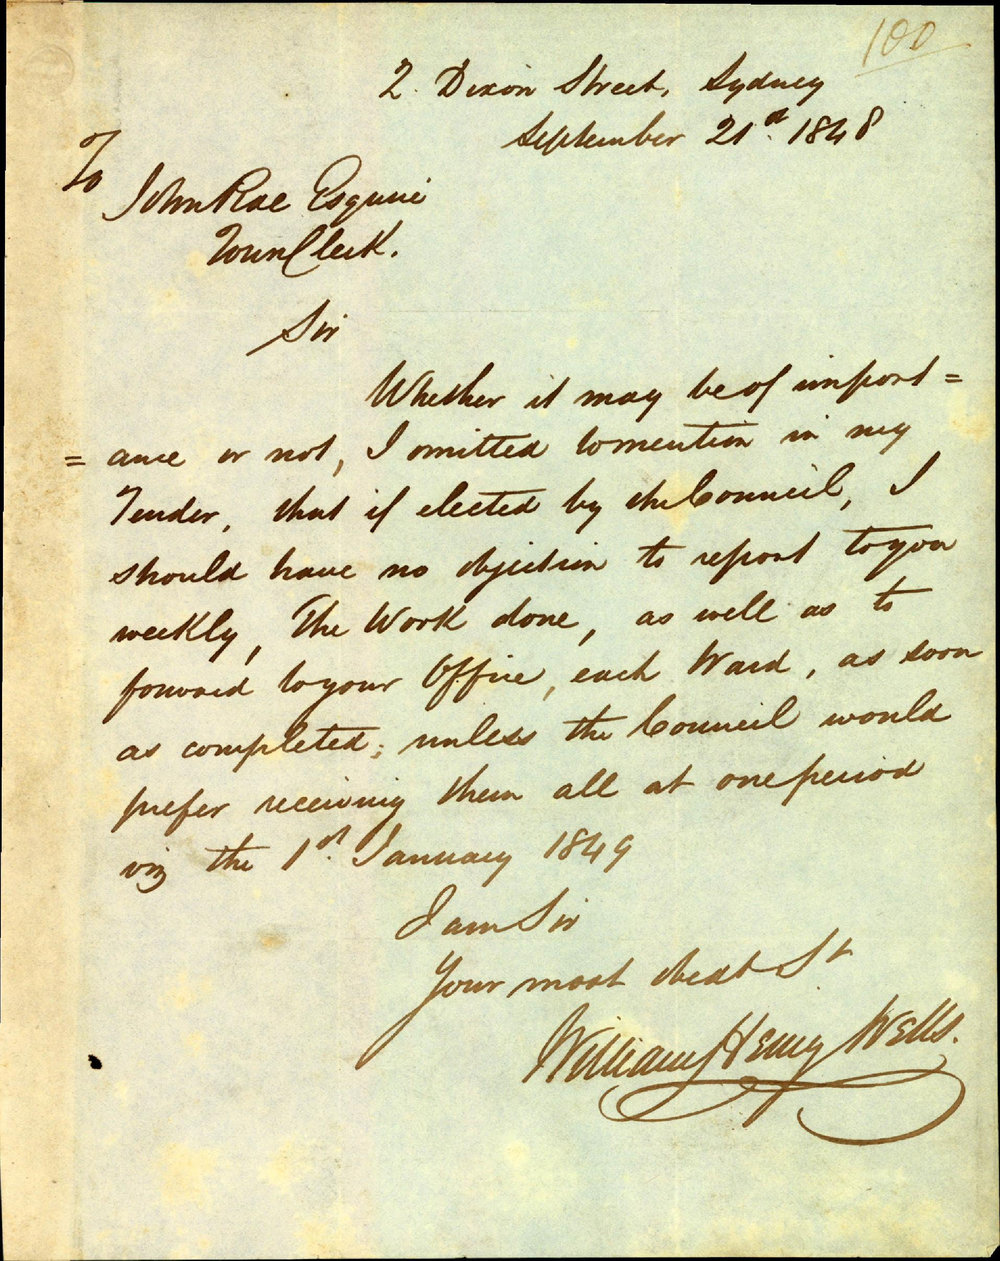 100
2 Dixon Street, Sydney
September 21st 1848
To
John Rae Esquire
Town Clerk.
Sir
Whether it may be of import=
=ance or not, I omitted to mention in my
Tender, that if elected by the Council, I
should have no objection to report to you
weekly, The Work done, as well as to
forward to your Office, each Ward, as soon
as completed; unless the Council would
prefer receiving them all at one period
viz the 1st January 1849
I am Sir
Your most obedt St
William Henry Wells.